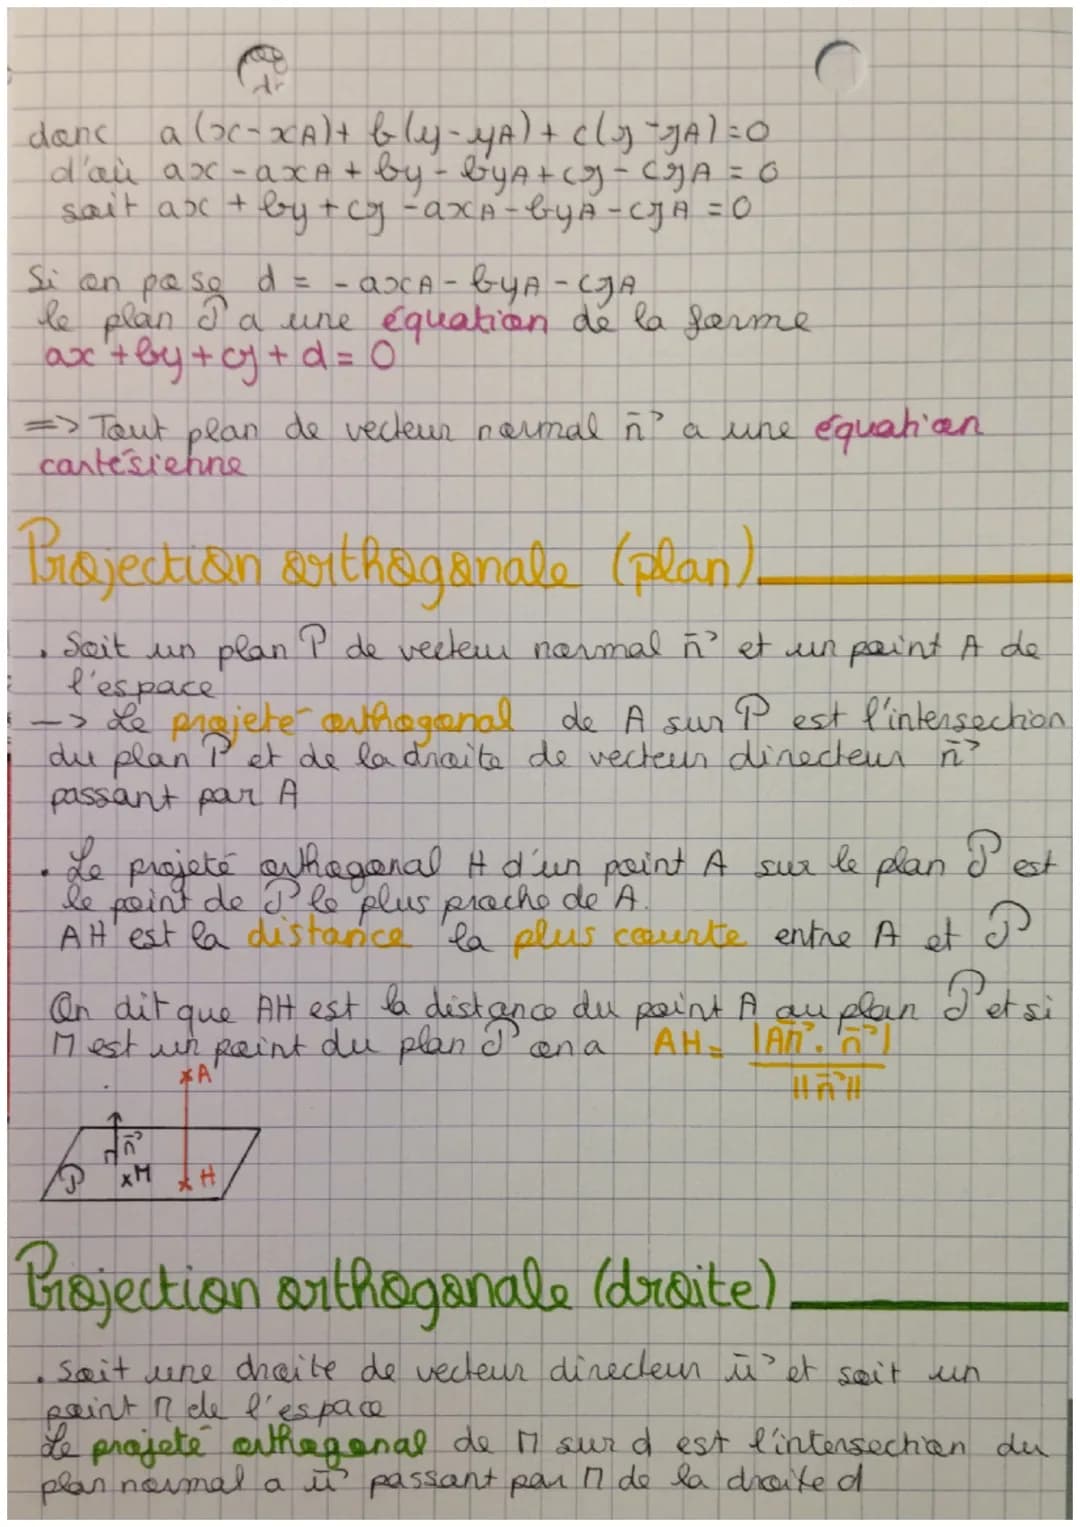 donc a(x-xA)+ b(y-yA)+ c(z-zA)=0
d'où ax-axA+by-byA+cz-czA=0
soit ax+by+cz-axA-byA-czA=0
Si on pose d = -axA-byA-czA
le plan P a une équation de la forme
ax+by+cz+d=0
=> Tout plan de vecteur normal n⃗ a une équation
cartésienne
Projection orthogonale (plan)
. Soit un plan P de vecteur normal n⃗ et un point A de
l'espace
-> Le projeté orthogonal de A sur P est l'intersection
du plan P et de la droite de vecteur directeur n⃗
passant par A
. Le projeté orthogonal H d'un point A sur le plan P est
le point de P le plus proche de A.
AH est la distance la plus courte entre A et P
On dit que AH est la distance du point A au plan P et si
M est un point du plan P on a AH = |AM⃗ . n⃗|
||n⃗||
A
n⃗
P M H
Projection orthogonale (droite)
. Soit une droite de vecteur directeur u⃗ et soit un
point M de l'espace
Le projeté orthogonal de M sur d est l'intersection du
plan normal a u⃗ passant par M de la droite d